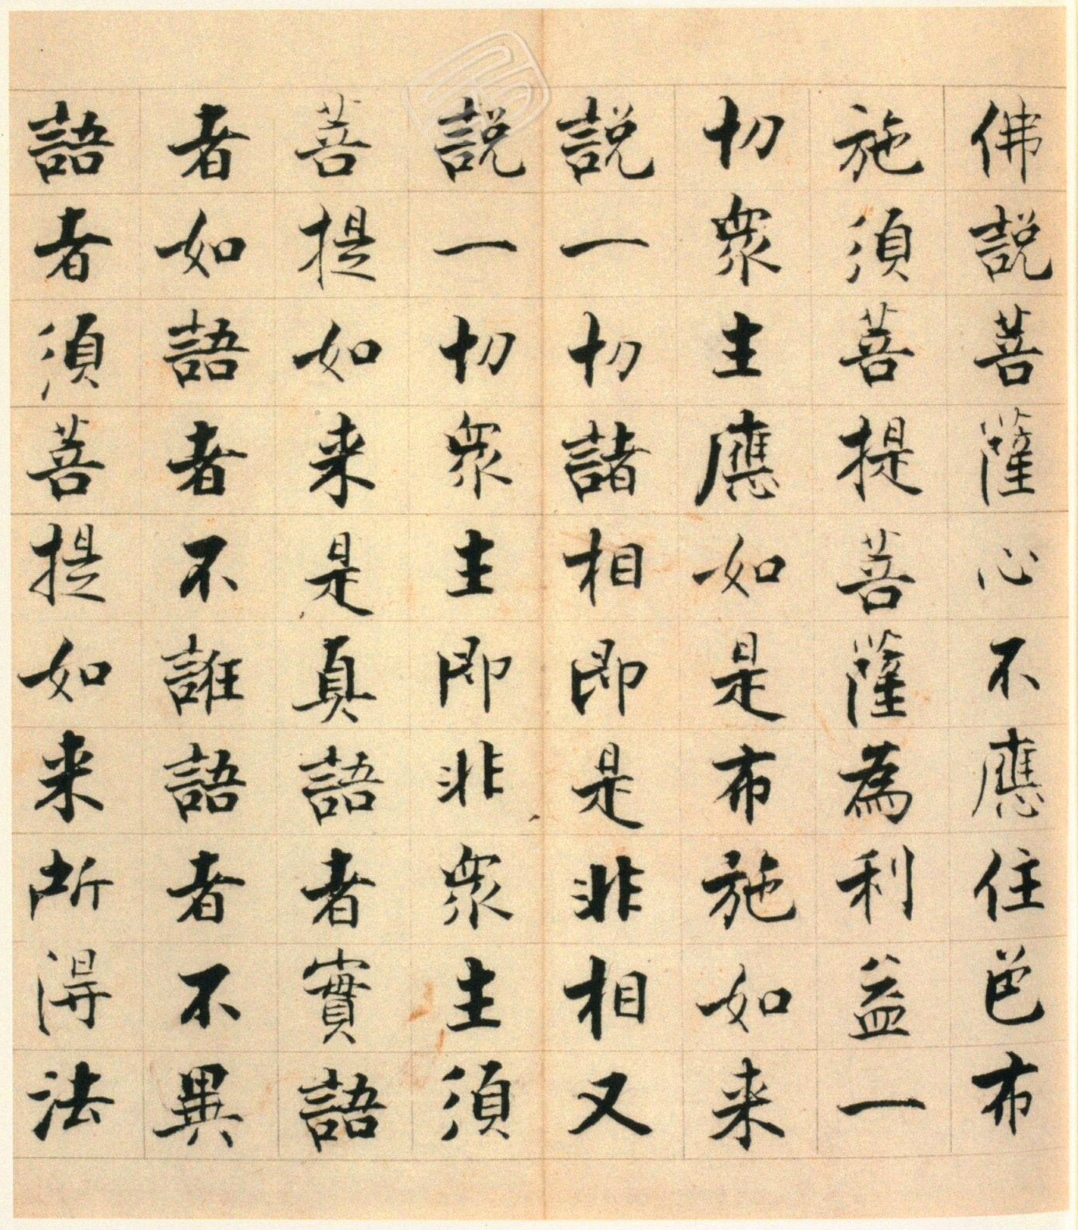 佛説菩薩心不應住色布
施須菩提菩薩為利益一
切衆生應如是布施如来
説一切諸相即是非相又
説一切衆生即非衆生須
菩提如来是真語者實語
者如語者不誑語者不異
語者須菩提如来所得法